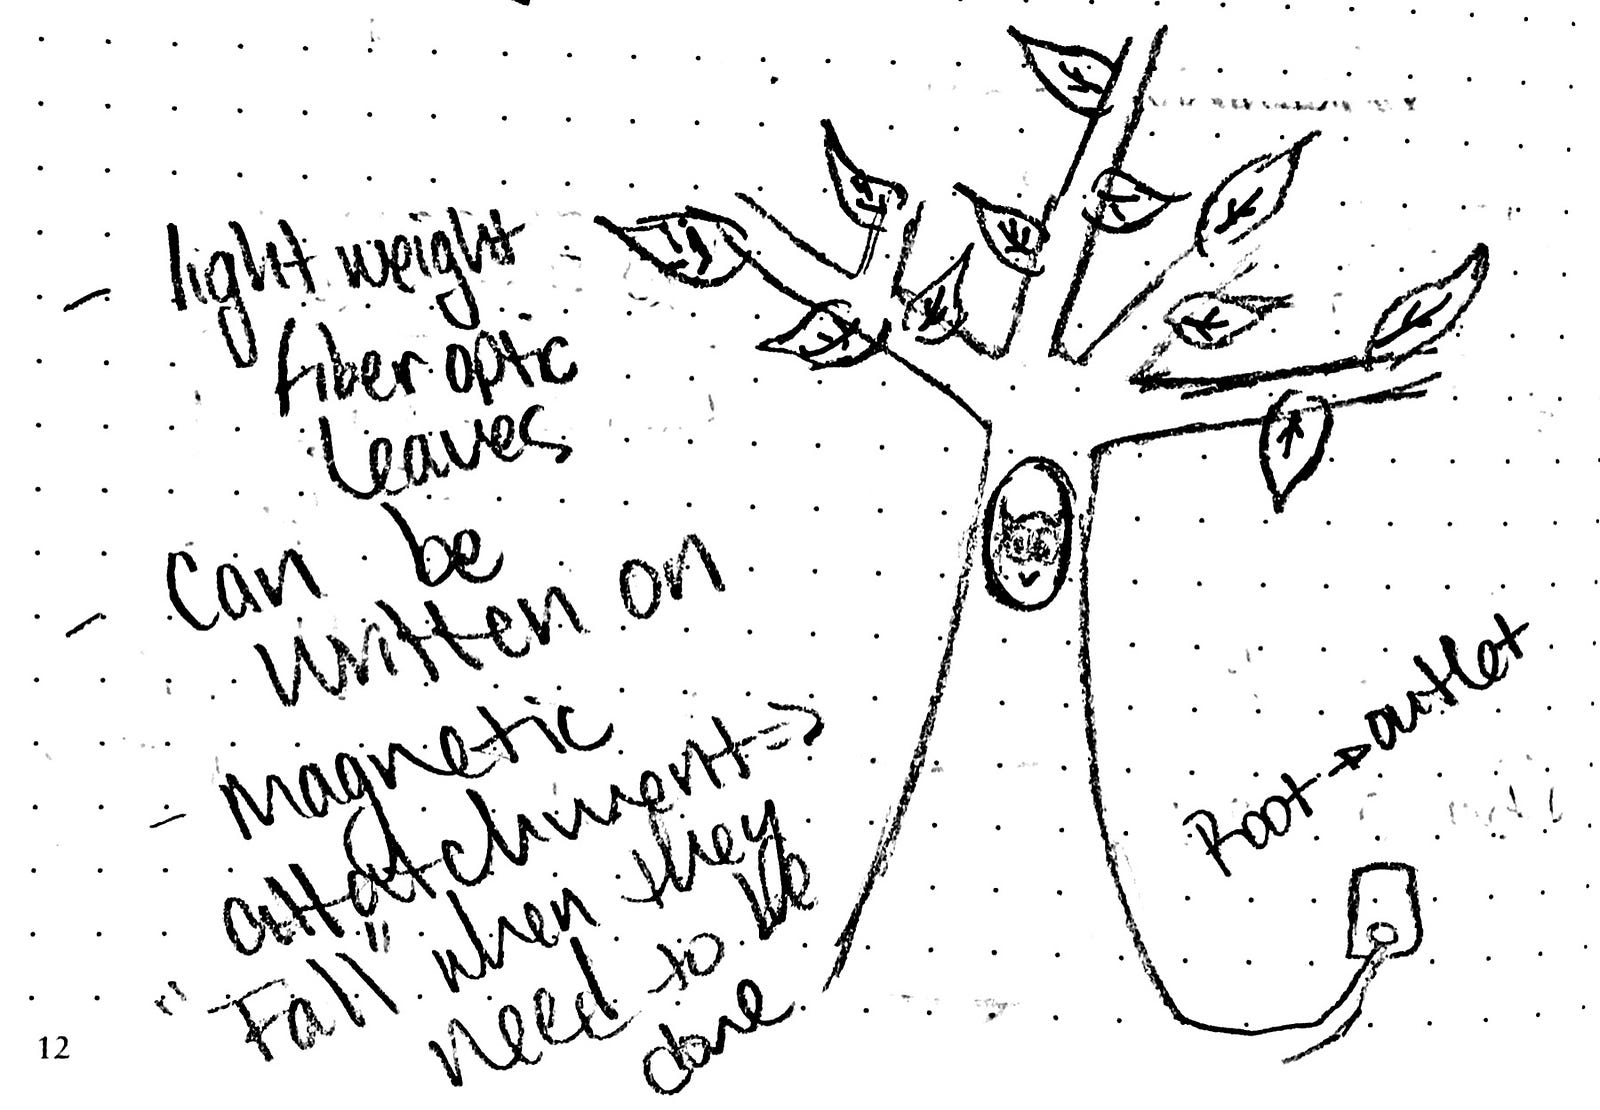 - light weight
fiber optic
leaves
- can be
written on
- magnetic
attatchment =>
"Fall" when they
need to be
done
Root → outlet
12